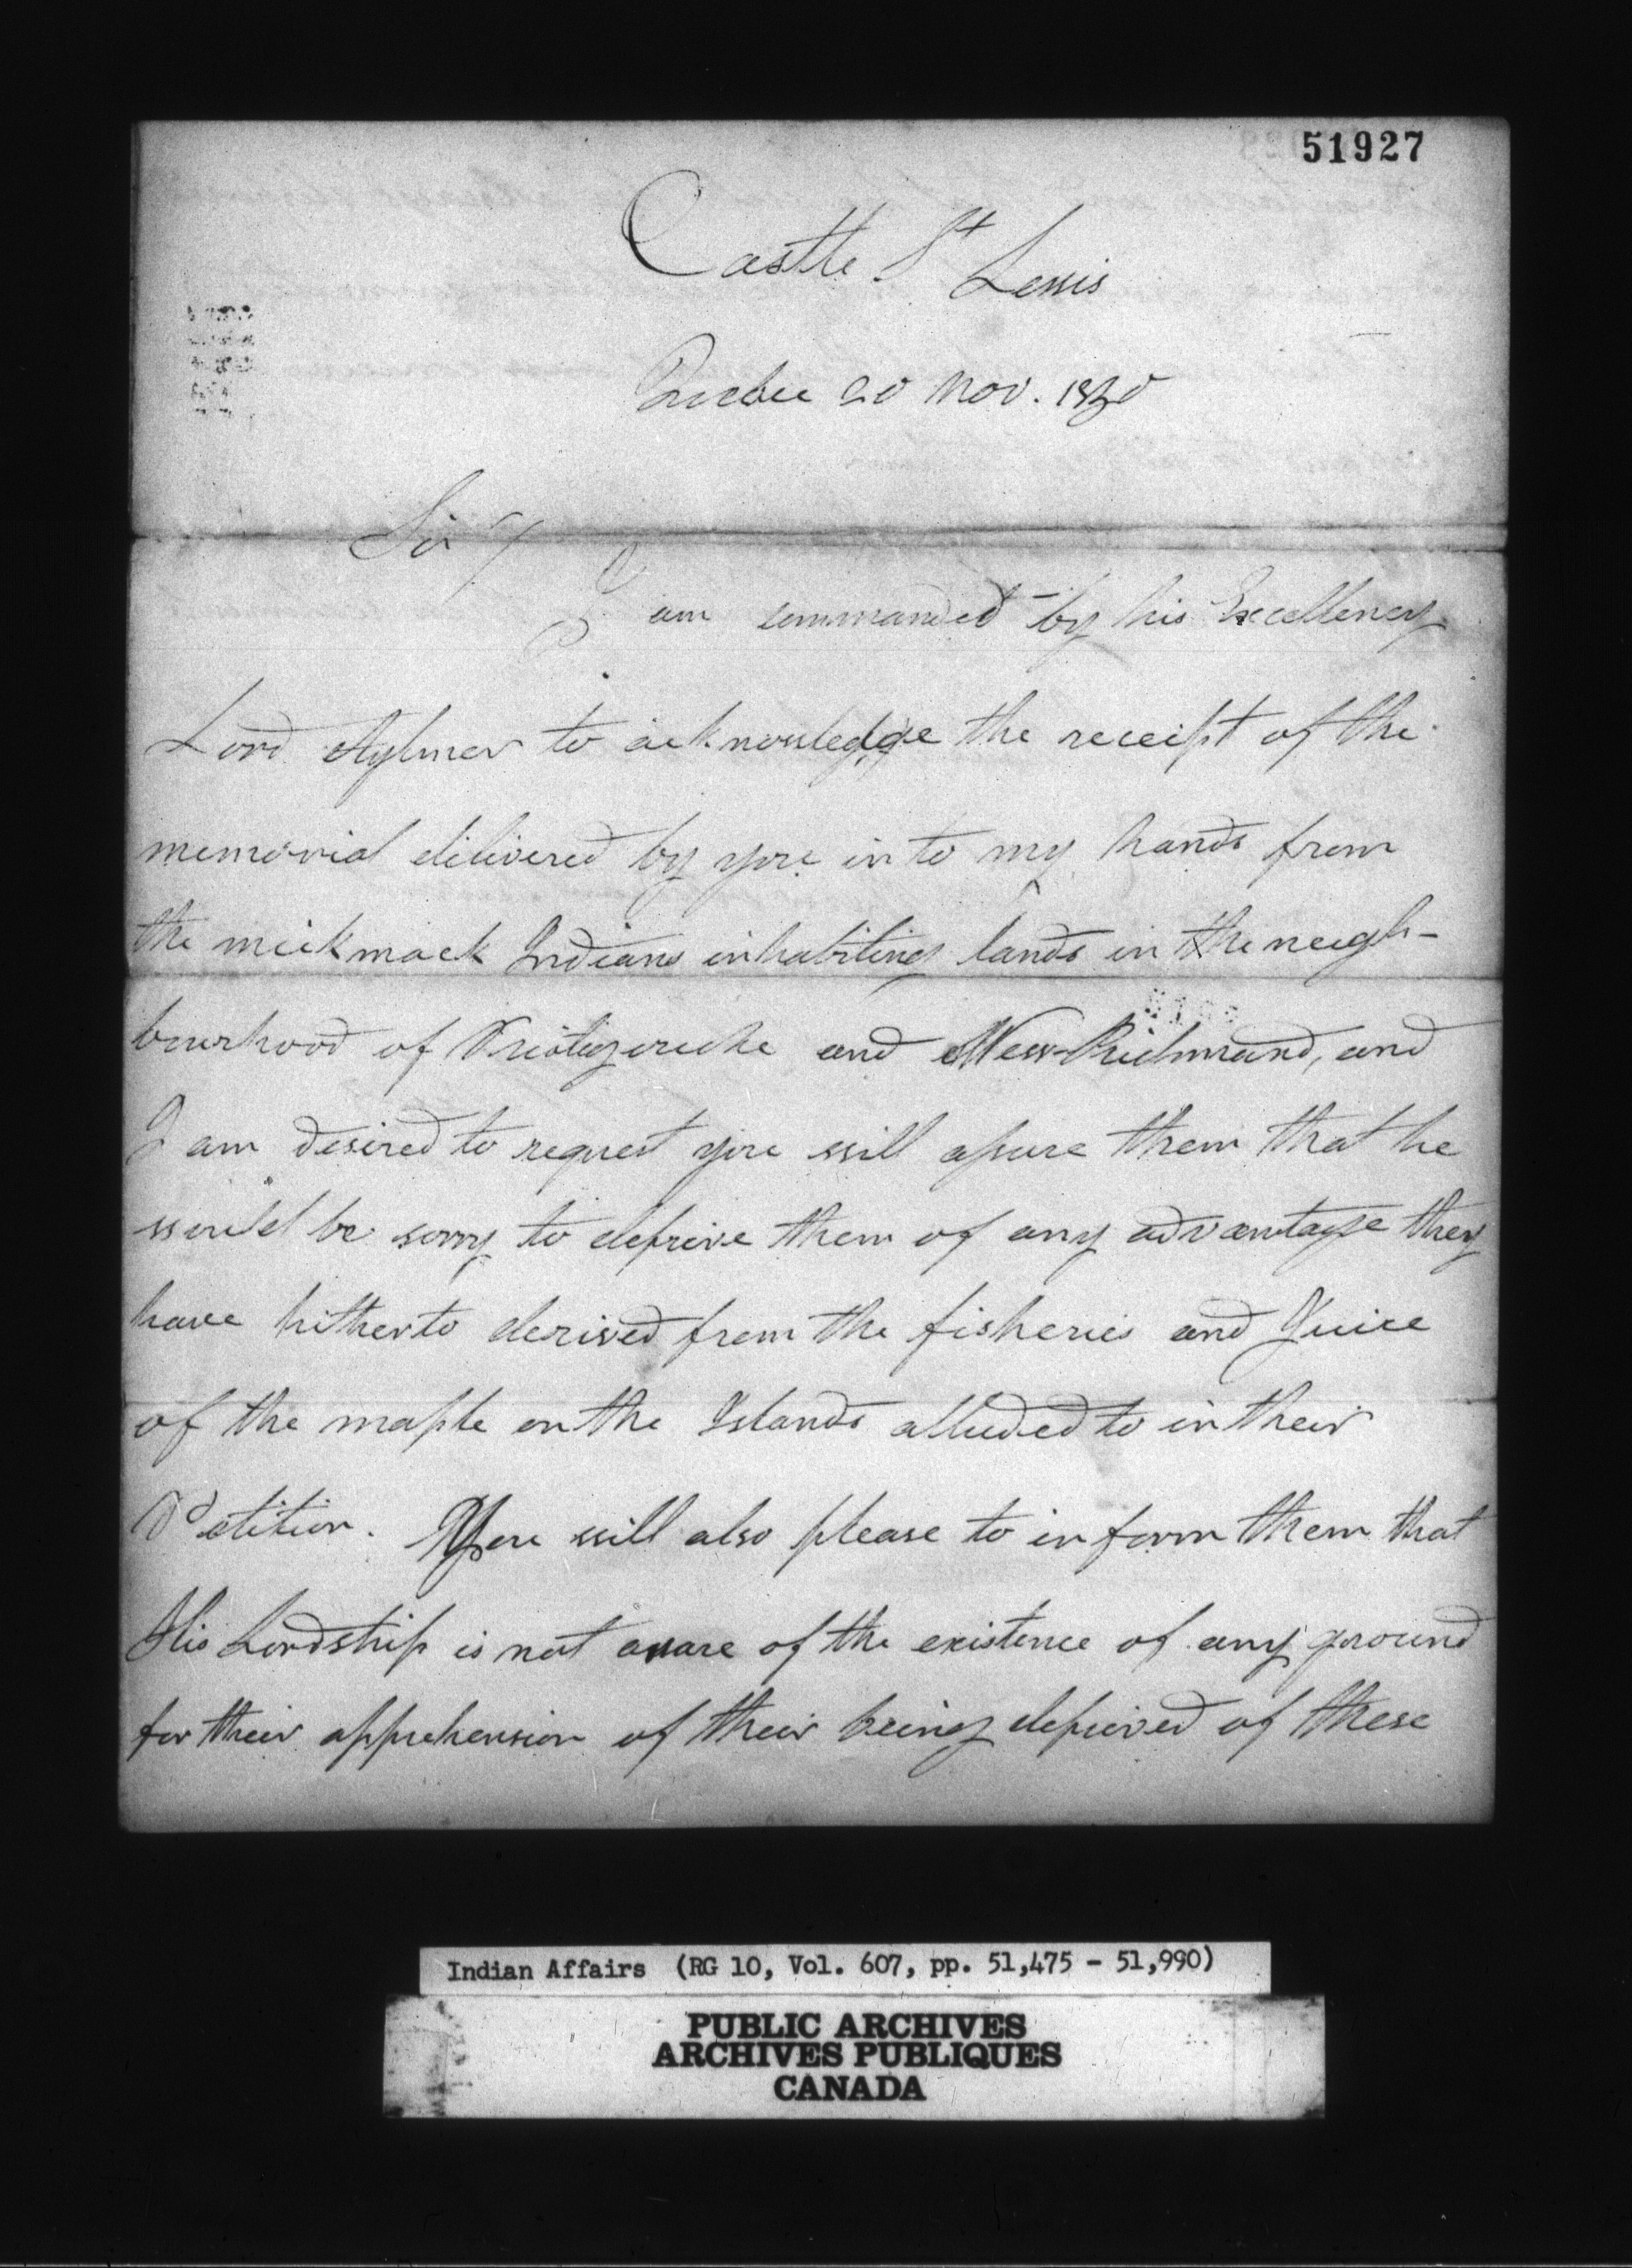 51927
Castle St Lewis
Quebec 20 Nov. 1830
Sir/
I am commanded by his Excellency
Lord Aylmer to acknowledge the receipt of the
memorial delivered by you into my hands from
the mickmack Indians inhabiting lands in the neigh-
bourhood of Ristigouche and New-Richmand, and
I am desired to request you will assure them that he
would be sorry to deprive them of any advantage they
have hitherto derived from the fisheries and Juice
of the maple on the Islands alluded to in their
Petition. You will also please to inform them that
His Lordship is not aware of the existence of any ground
for their apprehension of their being deprived of these
Indian Affairs (RG 10, Vol. 607, pp. 51,475 - 51,990)
PUBLIC ARCHIVES
ARCHIVES PUBLIQUES
CANADA